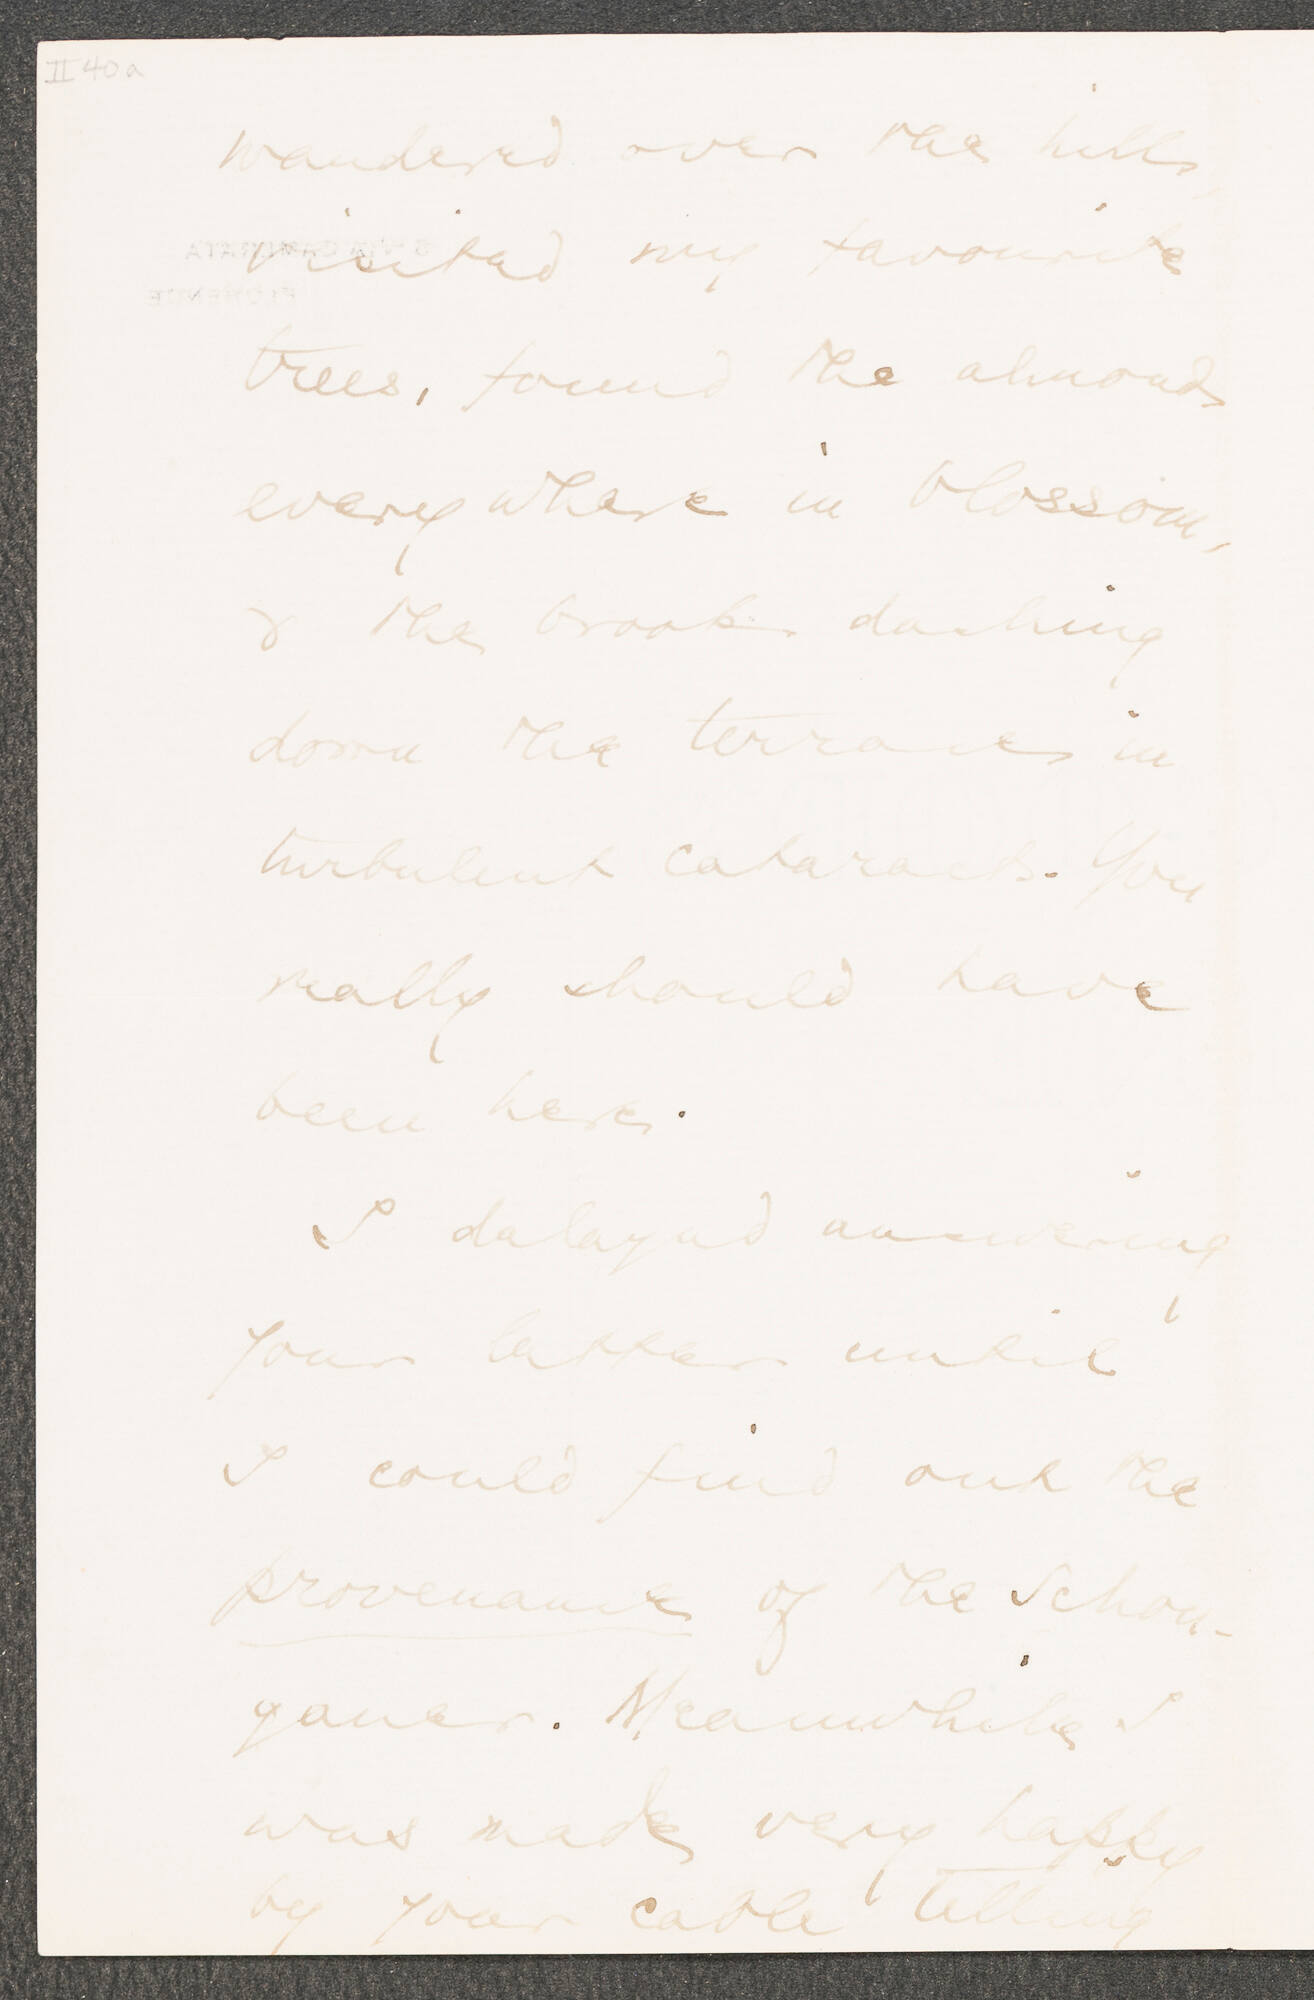 II 40a
wandered over the hills,
visited my favourite
trees, found the almonds
everywhere in blossom,
& the brooks dashing
down the terraces in
turbulent cataracts. You
really should have
been here.
I delayed answering
your letter until
I could find out the
provenance of the Schon-
gauer. Meanwhile I
was made very happy
by your cable telling